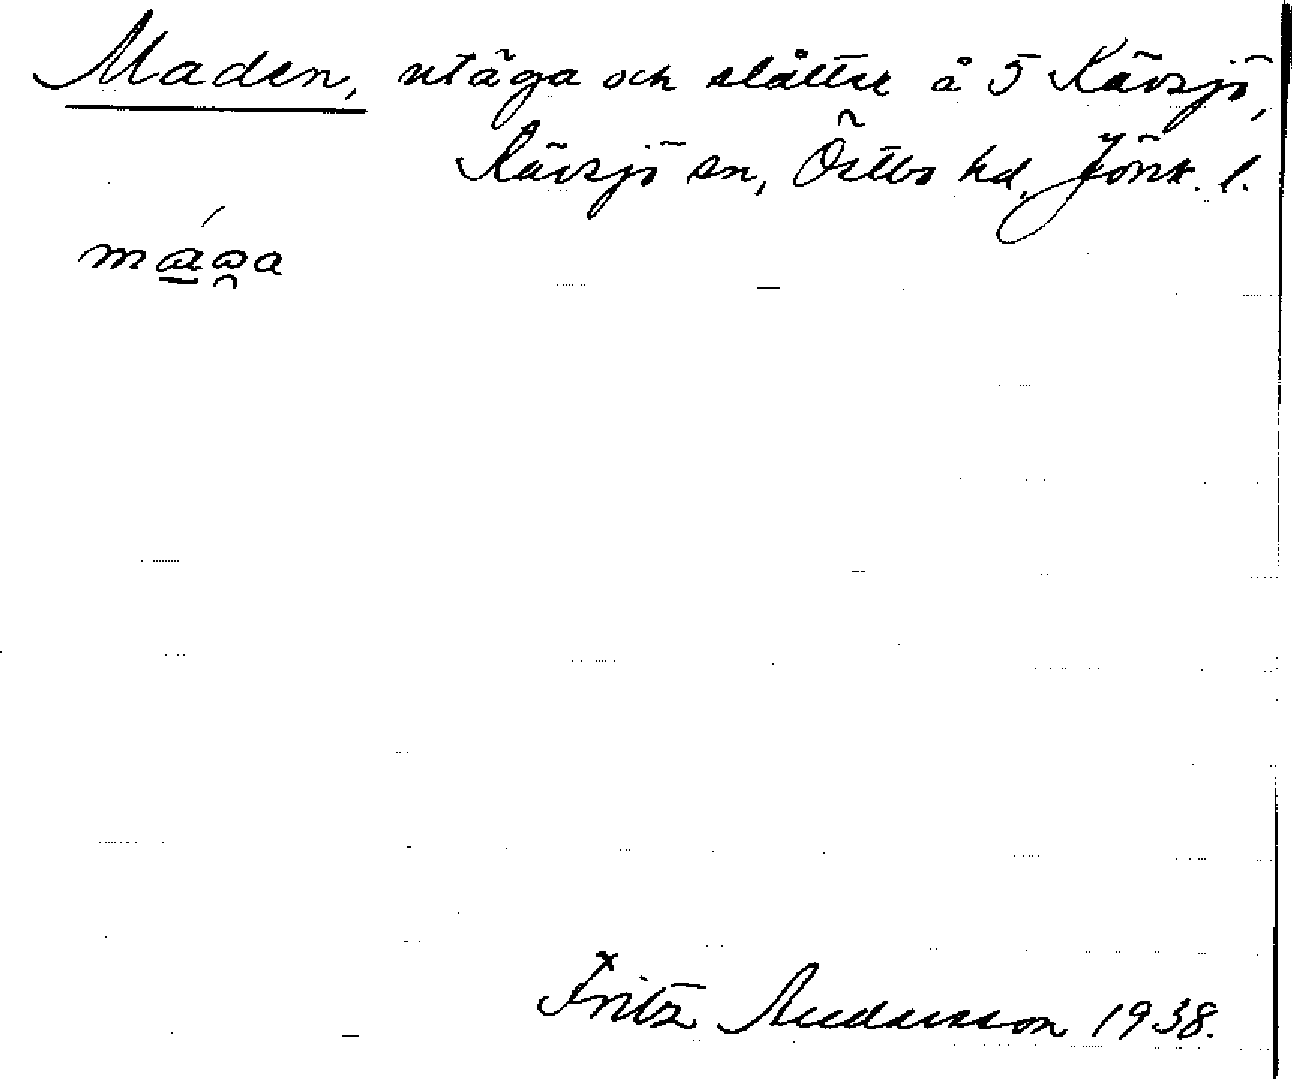 Maden, utäga och slåtter å 5 Kävsjö,
Kävsjö sn, Östbo hd, Jönk. l.
Fritz Andersson 1938.